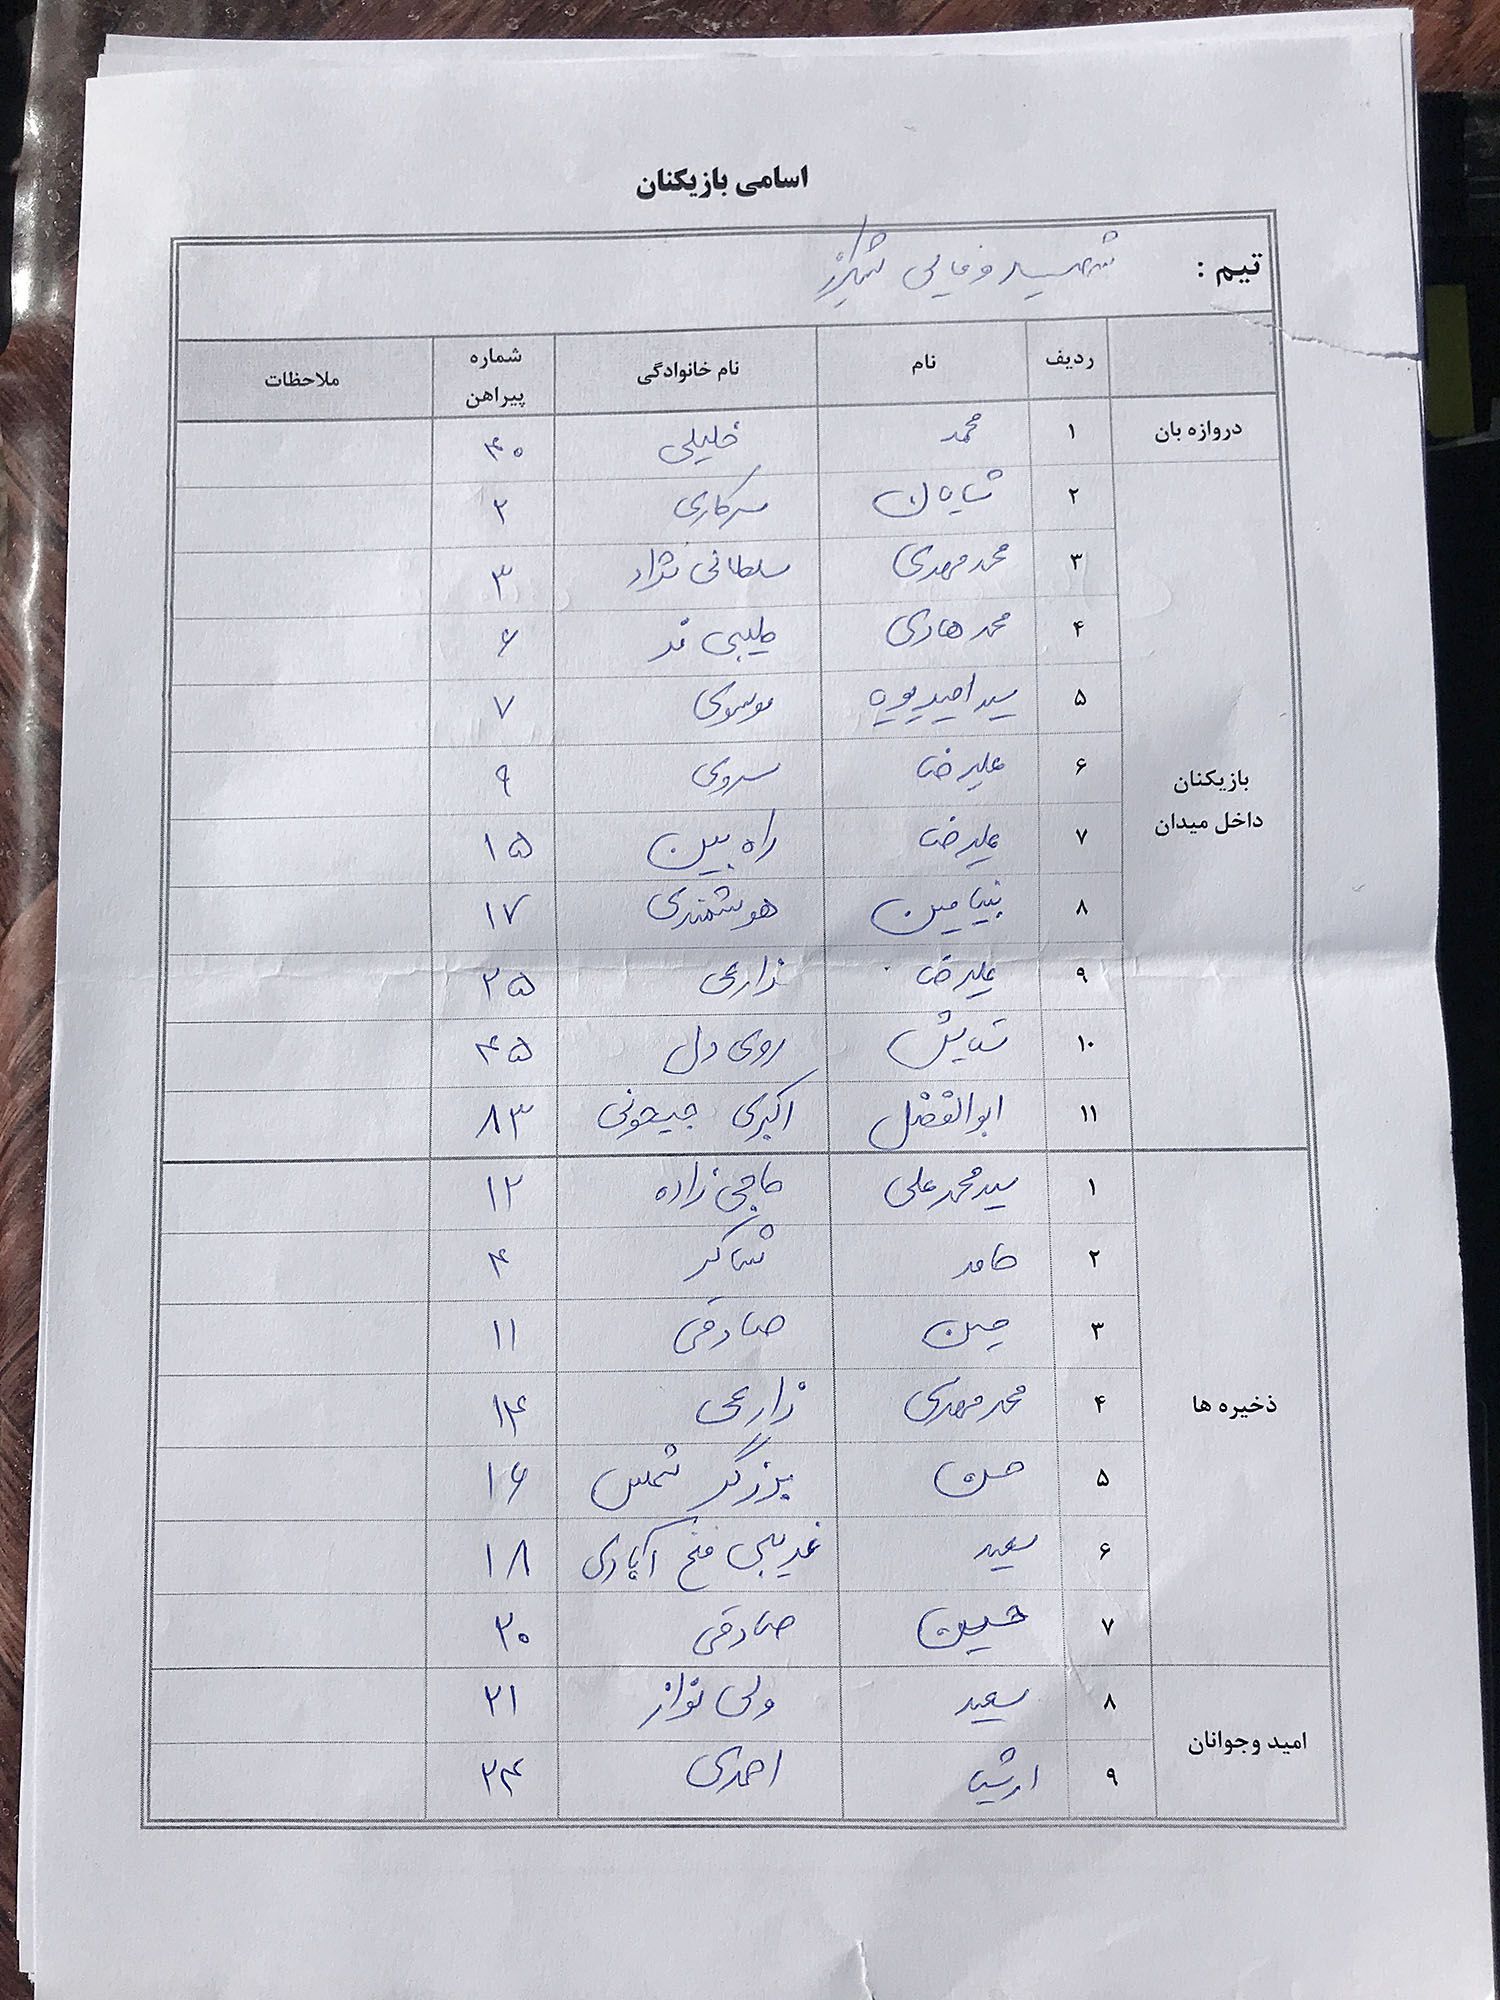 اسامی بازیکنان
تیم : شهید وفایی شیراز
ردیف نام نام خانوادگی شماره پیراهن ملاحظات
دروازه بان ۱ محمد خلیلی ۴۰
۲ شایان سرکاری ۲
۳ محمد مهدی سلطانی نژاد ۳
۴ محمد هادی طیبی قد ۶
۵ سید امید پویا موسوی ۷
بازیکنان داخل میدان ۶ علیرضا سروی ۹
۷ علیرضا راه بین ۱۵
۸ بنیامین هوشمندی ۱۷
۹ علیرضا زارعی ۲۵
۱۰ ستایش روی دل ۴۵
۱۱ ابوالفضل اکبری جیحونی ۸۳
۱ سید محمد علی حاجی زاده ۱۲
۲ حامد شاکر ۴
۳ صادقی ۱۱
ذخیره ها ۴ محمد مهدی زارعی ۱۴
۵ حسن برزگر شمس ۱۶
۶ سعید غریبی فتح آبادی ۱۸
۷ حسین صادقی ۲۰
امید وجوانان ۸ سعید ولی نواز ۲۱
۹ ارشیا احمدی ۲۴